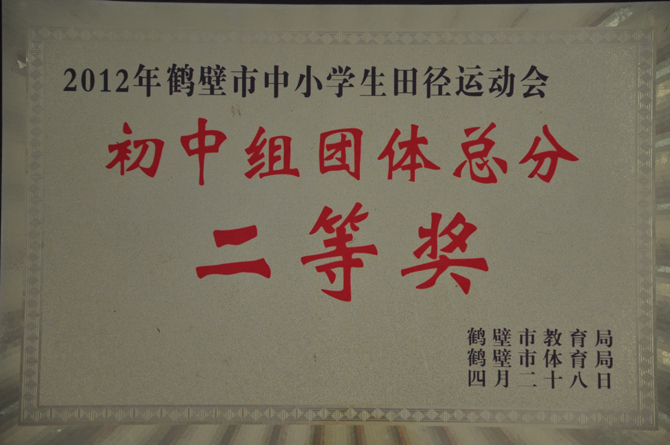 2012年鹤壁市中小学生田径运动会
初中组团体总分
二等奖
鹤壁市教育局
鹤壁市体育局
四月二十八日